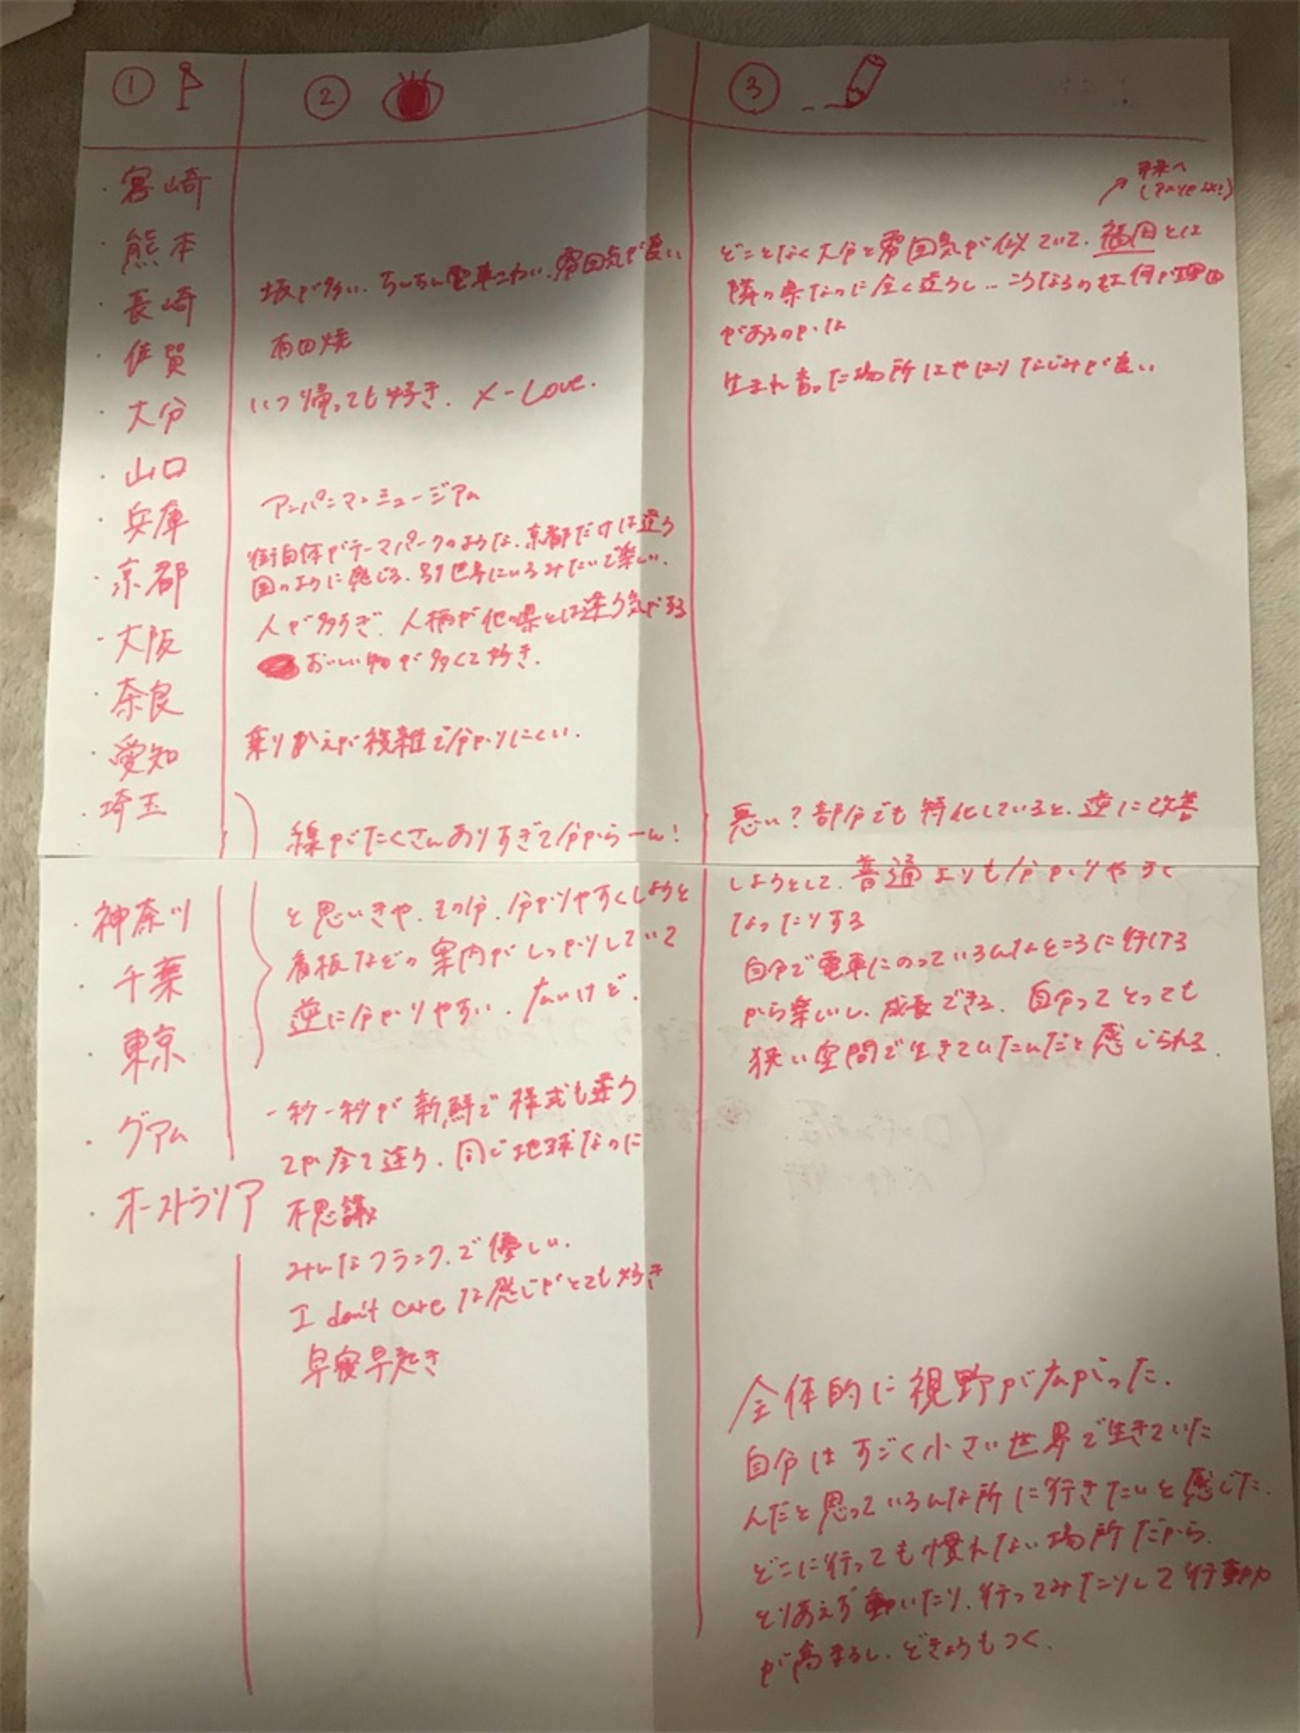 ①
②
③
・宮崎
・熊本
・長崎
・佐賀
・大分
・山口
・兵庫
・京都
・大阪
・奈良
・愛知
・埼玉
・神奈川
・千葉
・東京
・グアム
・オーストラリア
坂が多い、ちんちん電車こわい、雰囲気が良い
有田焼
いつ帰っても好き、メーLove.
アンパンマンミュージアム
街自体がテーマパークのような、京都だけは違う
国のように感じる、別世界にいるみたいで楽しい、
人が多すぎ、人柄が他の県とは違う気がする
おいしい物が多くて好き、
乗りかえが複雑で分かりにくい、
線がたくさんありすぎて分からーん!
と思いきや、その分、分かりやすくしようと
看板などの案内がしっかりしていて
逆に分かりやすい、広いけど、
一秒一秒が新鮮で様式も違う
て全て違う、同じ地球なのに
不思議
みんなフランクで優しい、
I don't care な感じがとても好き
早寝早起き
どことなく大分と雰囲気が似ていて、福岡とは
隣の県なのに全く違うし… こうなるのも何か理由
があるのかな
生まれ育った場所はやはりなじみが良い
悪い?部分でも特化していると、逆に改善
しようとして、普通よりも分かりやすく
なったりする
自分で電車にのっていろんなところに行ける
から楽しいし、成長できる、自分ってとっても
狭い空間で生きていたんだと感じられる、
全体的に視野が広がった、
自分はすごく小さい世界で生きていた
んだと思っていろんな所に行きたいと感じた、
どこに行っても慣れない場所だから、
とりあえず動いたり、行ってみたりして行動力
が高まるし、どきょうもつく、